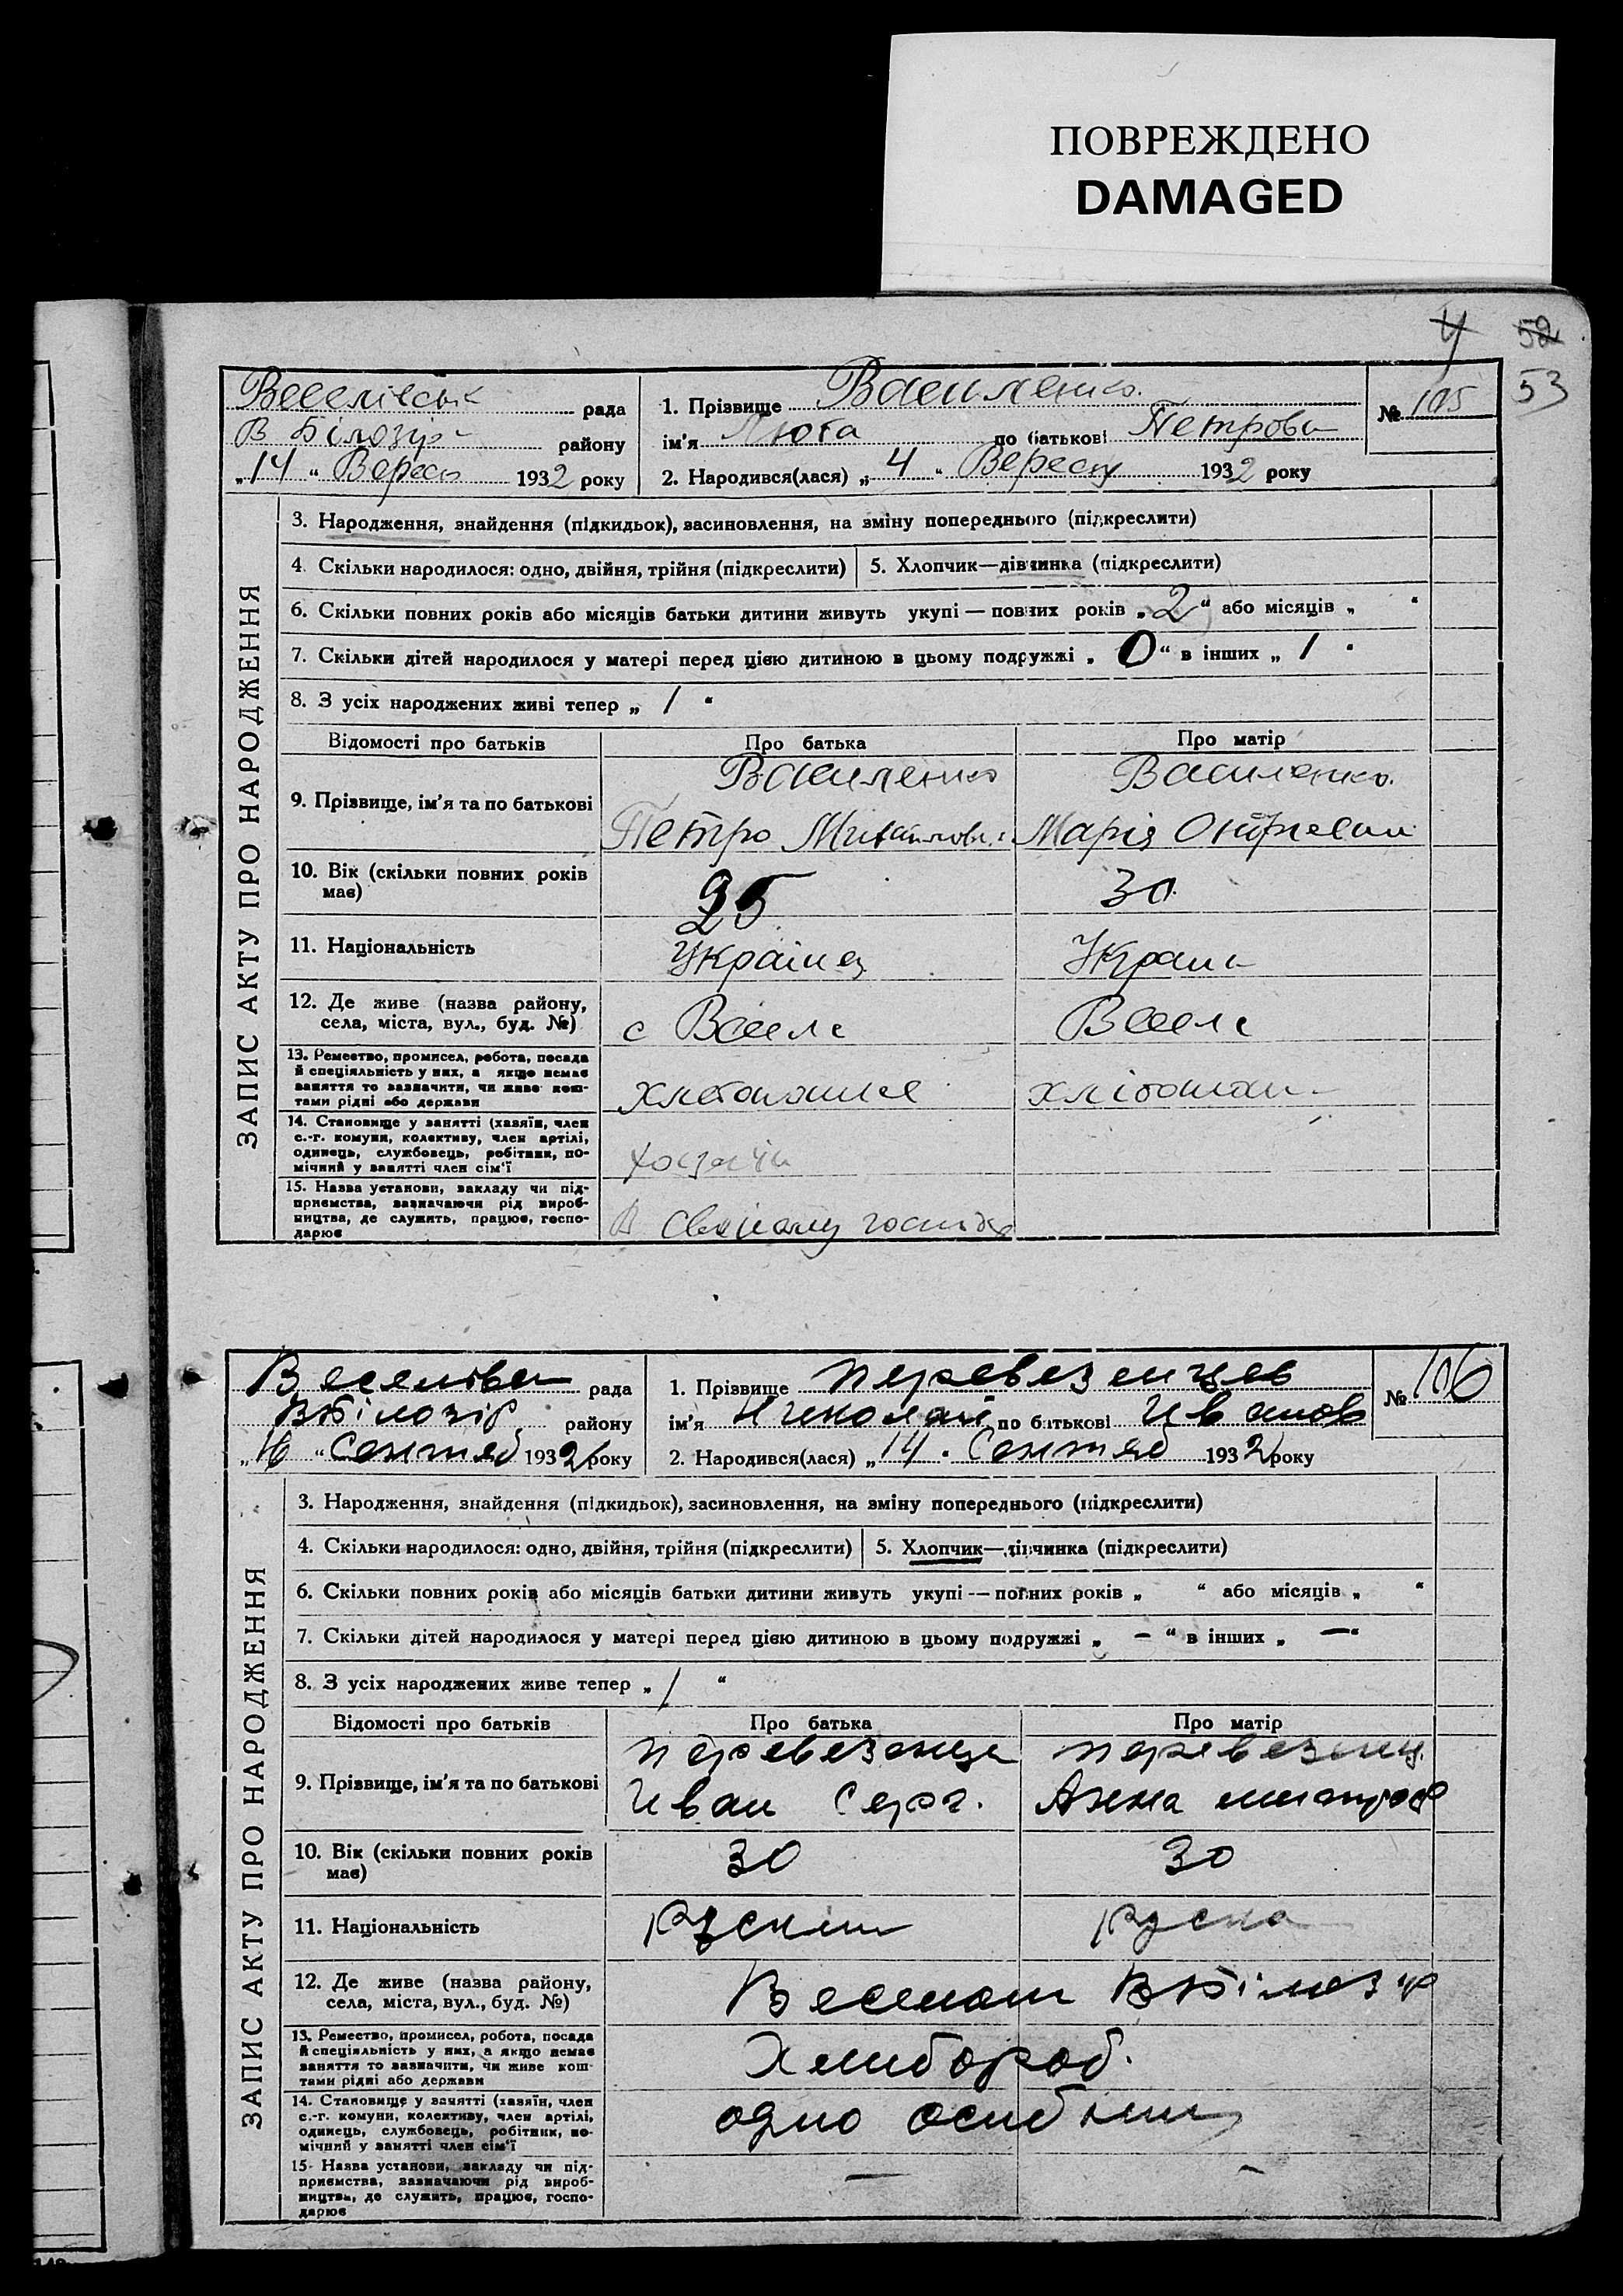 ПОВРЕЖДЕНО
DAMAGED
4 52
53
Веселівськ рада
В Білозір району
„14“ Верес 1932 року
1. Прізвище Василенко
ім'я Люба по батькові Петровн
2. Народився(лася) „4“ Вересн 1932 року
№ 105
ЗАПИС АКТУ ПРО НАРОДЖЕННЯ
3. Народження, знайдення (підкидьок), засиновлення, на зміну попереднього (підкреслити)
4. Скільки народилося: одно, двійня, трійня (підкреслити) 5. Хлопчик—дівчинка (підкреслити)
6. Скільки повних років або місяців батьки дитини живуть укупі — повних років „2“ або місяців „ “
7. Скільки дітей народилося у матері перед цією дитиною в цьому подружжі „0“ в інших „1“
8. З усіх народжених живі тепер „1“
Відомості про батьків Про батька Про матір
9. Прізвище, ім'я та по батькові
Василенко Василенко
Петро Михайлови Марія
10. Вік (скільки повних років має) 25 30
11. Національність Українец Украин
12. Де живе (назва району, села, міста, вул., буд. №) с Весел Весел
13. Ремество, промисел, робота, посада
й спеціяльність у них, а якщо немає
заняття то зазначити, чи живе кош-
тами рідні або держави
14. Становище у занятті (хазяїн, член
с.-г. комуни, колективу, член артілі,
одинець, службовець, робітник, по-
мічний у занятті член сім'ї
15. Назва установи, закладу чи під-
приємства, зазначаючи рід вироб-
ництва, де служить, працює, госпо-
дарює
В своїому господ
Веселівск рада
ВБілозір району
„16“ Сентяб 1932 року
1. Прізвище Перевезенцев
ім'я Николай по батькові Иванов
2. Народився(лася) „14“ Сентяб 1932 року
№ 106
ЗАПИС АКТУ ПРО НАРОДЖЕННЯ
3. Народження, знайдення (підкидьок), засиновлення, на зміну попереднього (підкреслити)
4. Скільки народилося: одно, двійня, трійня (підкреслити) 5. Хлопчик—дівчинка (підкреслити)
6. Скільки повних років або місяців батьки дитини живуть укупі — повних років „ “ або місяців „ “
7. Скільки дітей народилося у матері перед цією дитиною в цьому подружжі „ – “ в інших „ — “
8. З усіх народжених живе тепер „1“
Відомості про батьків Про батька Про матір
9. Прізвище, ім'я та по батькові
Перевезенце Перевезенц
Иван Серг. Анна
10. Вік (скільки повних років має) 30 30
11. Національність Руский Руска
12. Де живе (назва району, села, міста, вул., буд. №) ВБілозір
13. Ремество, промисел, робота, посада
й спеціяльність у них, а якщо немає
заняття то зазначити, чи живе кош-
тами рідні або держави
Хлибороб.
14. Становище у занятті (хазяїн, член
с.-г. комуни, колективу, член артілі,
одинець, службовець, робітник, по-
мічний у занятті член сім'ї
одноосибник
15. Назва установи, закладу чи під-
приємства, зазначаючи рід вироб-
ництва, де служить, працює, госпо-
дарює